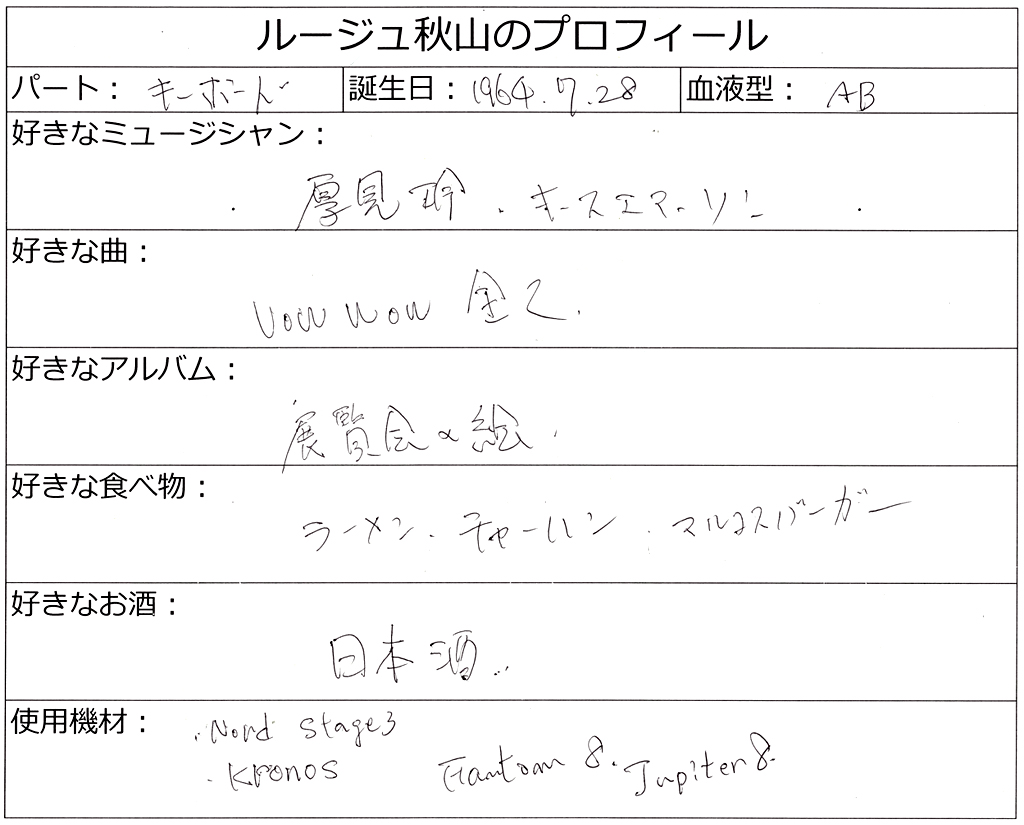 ルージュ秋山のプロフィール
パート： キーボード 誕生日：1964.7.28 血液型： AB
好きなミュージシャン：
厚見玲．キースエマーソン
好きな曲：
VOW WOW 全て．
好きなアルバム：
展覧会の絵．
好きな食べ物：
ラーメン．チャーハン．マルコスバーガー
好きなお酒：
日本酒...
使用機材： ・Nord Stage3
・Kronos Fantom 8．Jupiter 8．